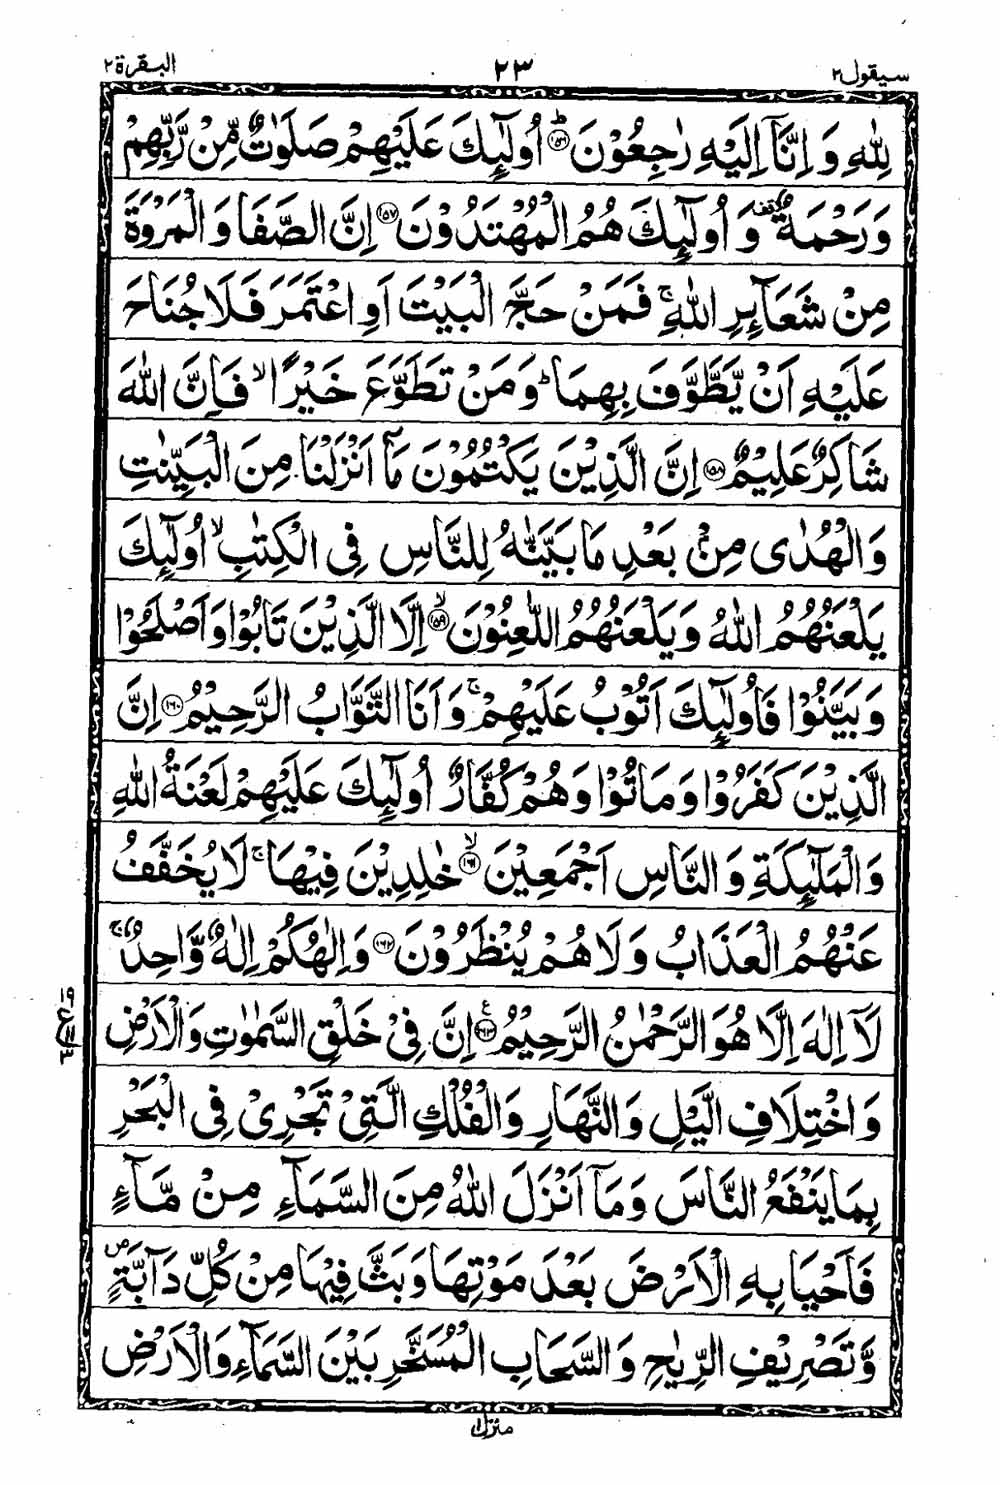 سيقول ٢ ٢٣ البقرة ٢
لِلّٰهِ وَ اِنَّاۤ اِلَيْهِ رٰجِعُوْنَ ﴿۱۵۶﴾ؕ اُولٰٓئِكَ عَلَيْهِمْ صَلَوٰتٌ مِّنْ رَّبِّهِمْ
وَ رَحْمَةٌ ۟ وَ اُولٰٓئِكَ هُمُ الْمُهْتَدُوْنَ ﴿۱۵۷﴾ اِنَّ الصَّفَا وَ الْمَرْوَةَ
مِنْ شَعَآئِرِ اللّٰهِ ۚ فَمَنْ حَجَّ الْبَيْتَ اَوِ اعْتَمَرَ فَلَا جُنَاحَ
عَلَيْهِ اَنْ يَّطَّوَّفَ بِهِمَا ؕ وَ مَنْ تَطَوَّعَ خَيْرًا ۙ فَاِنَّ اللّٰهَ
شَاكِرٌ عَلِيْمٌ ﴿۱۵۸﴾ اِنَّ الَّذِيْنَ يَكْتُمُوْنَ مَاۤ اَنْزَلْنَا مِنَ الْبَيِّنٰتِ
وَ الْهُدٰى مِنْۢ بَعْدِ مَا بَيَّنّٰهُ لِلنَّاسِ فِى الْكِتٰبِ ۙ اُولٰٓئِكَ
يَلْعَنُهُمُ اللّٰهُ وَ يَلْعَنُهُمُ اللّٰعِنُوْنَ ﴿۱۵۹﴾ۙ اِلَّا الَّذِيْنَ تَابُوْا وَ اَصْلَحُوْا
وَ بَيَّنُوْا فَاُولٰٓئِكَ اَتُوْبُ عَلَيْهِمْ ۚ وَ اَنَا التَّوَّابُ الرَّحِيْمُ ﴿۱۶۰﴾ اِنَّ
الَّذِيْنَ كَفَرُوْا وَ مَاتُوْا وَ هُمْ كُفَّارٌ اُولٰٓئِكَ عَلَيْهِمْ لَعْنَةُ اللّٰهِ
وَ الْمَلٰٓئِكَةِ وَ النَّاسِ اَجْمَعِيْنَ ﴿۱۶۱﴾ۙ خٰلِدِيْنَ فِيْهَا ۚ لَا يُخَفَّفُ
عَنْهُمُ الْعَذَابُ وَ لَا هُمْ يُنْظَرُوْنَ ﴿۱۶۲﴾ وَ اِلٰهُكُمْ اِلٰهٌ وَّاحِدٌ ۚ
لَاۤ اِلٰهَ اِلَّا هُوَ الرَّحْمٰنُ الرَّحِيْمُ ﴿۱۶۳﴾ اِنَّ فِيْ خَلْقِ السَّمٰوٰتِ وَ الْاَرْضِ
وَ اخْتِلَافِ الَّيْلِ وَ النَّهَارِ وَ الْفُلْكِ الَّتِيْ تَجْرِيْ فِى الْبَحْرِ
بِمَا يَنْفَعُ النَّاسَ وَ مَاۤ اَنْزَلَ اللّٰهُ مِنَ السَّمَآءِ مِنْ مَّآءٍ
فَاَحْيَا بِهِ الْاَرْضَ بَعْدَ مَوْتِهَا وَ بَثَّ فِيْهَا مِنْ كُلِّ دَآبَّةٍ ۪
وَّ تَصْرِيْفِ الرِّيٰحِ وَ السَّحَابِ الْمُسَخَّرِ بَيْنَ السَّمَآءِ وَ الْاَرْضِ
منزل ١